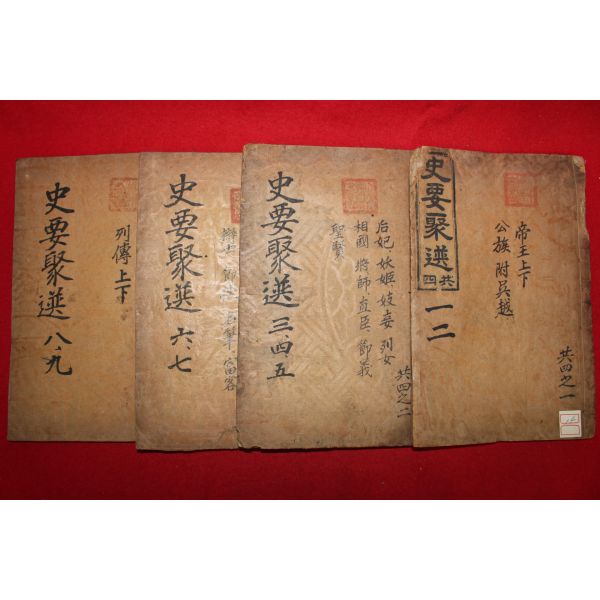 史要聚選
共四
一二
帝王上下
公族 附吳越
共四之一
史要聚選 三、四、五
后妃 妖姬 妓妾 列女
相國 將師 直臣 節義
聖賢
共四之二
史要聚選 六、七
史要聚選 八、九
列傳 上下